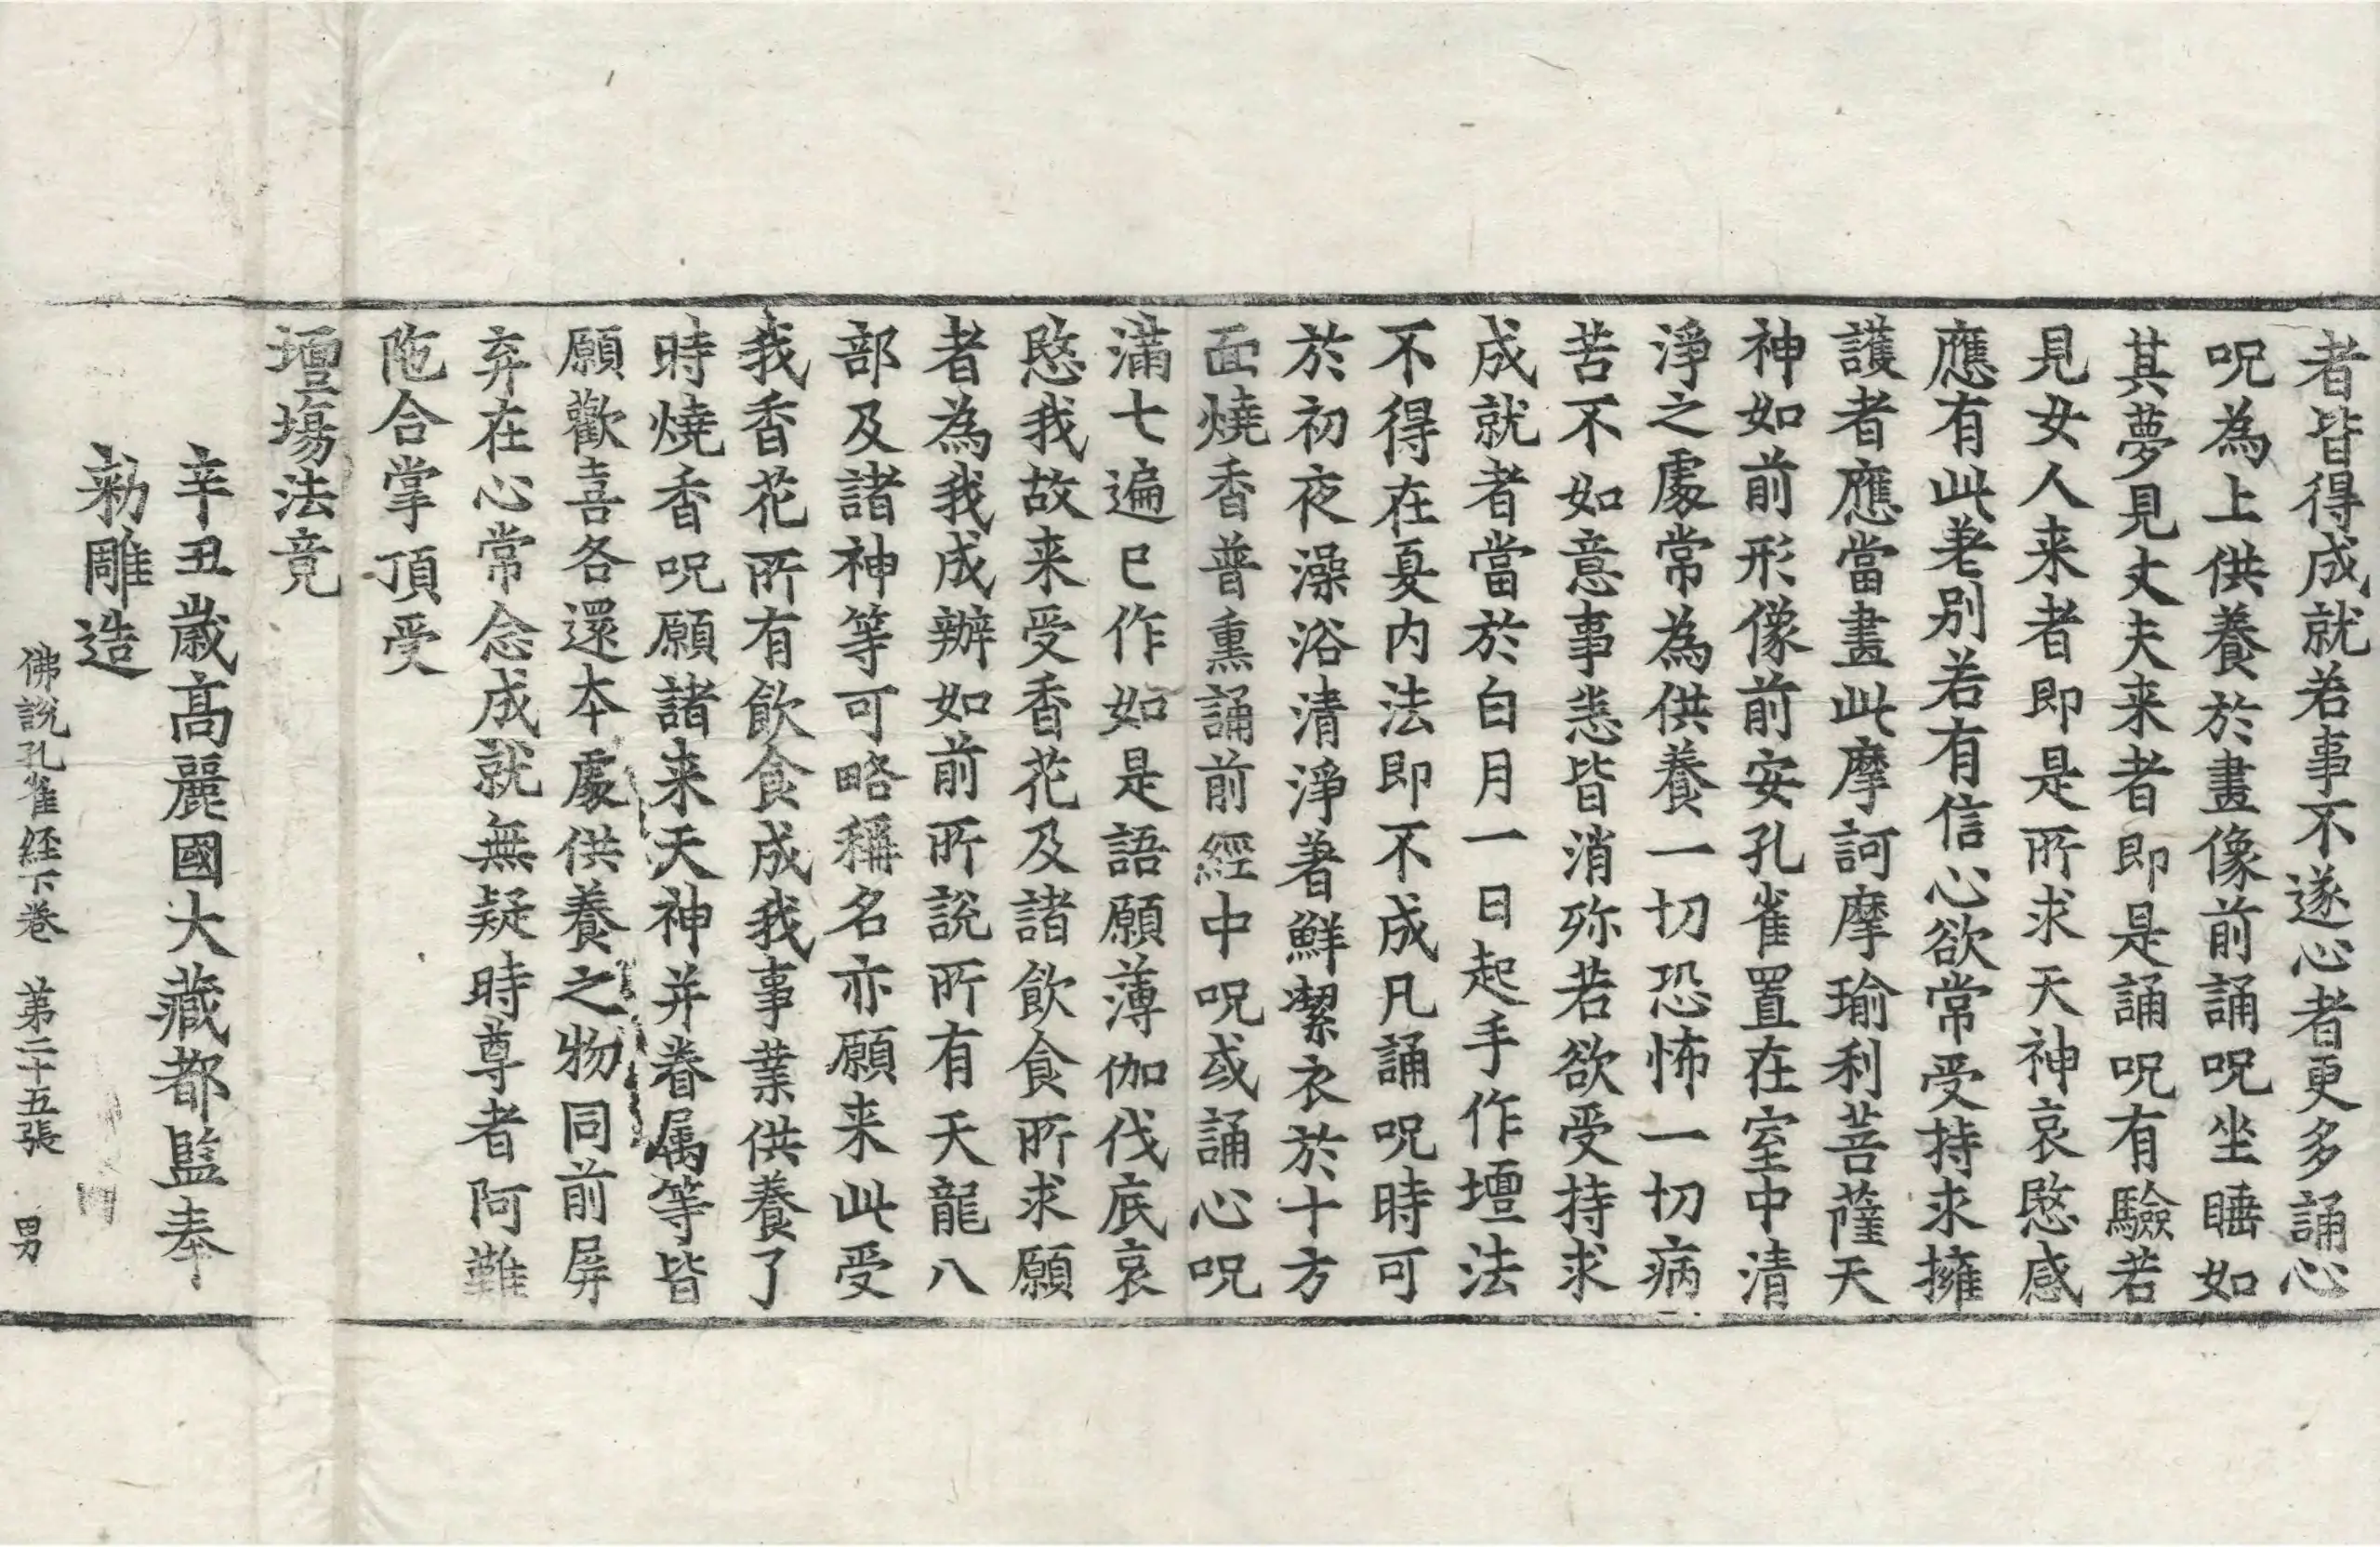 者皆得成就若事不遂心者更多誦心
呪為上供養於畫像前誦呪坐睡如
其夢見丈夫来者即是誦呪有驗若
見女人来者即是所求天神哀愍感
應有此差別若有信心欲常受持求擁
護者應當畫此摩訶摩瑜利菩薩天
神如前形像前安孔雀置在室中清
淨之處常為供養一切恐怖一切病
苦不如意事悉皆消殄若欲受持求
成就者當於白月一日起手作壇法
不得在夏內法即不成凡誦呪時可
於初夜澡浴清淨著鮮潔衣於十方
面燒香普熏誦前經中呪或誦心呪
滿七遍已作如是語願薄伽伐底哀
愍我故来受香花及諸飲食所求願
者為我成辦如前所說所有天龍八
部及諸神等可略稱名亦願来此受
我香花所有飲食成我事業供養了
時燒香呪願諸来天神并眷属等皆
願歡喜各還本處供養之物同前屏
弃在心常念成就無疑時尊者阿難
陁合掌頂受
壇場法竟
辛丑歲高麗國大藏都監奉
勑雕造
佛說孔雀経下卷 第二十五張 男